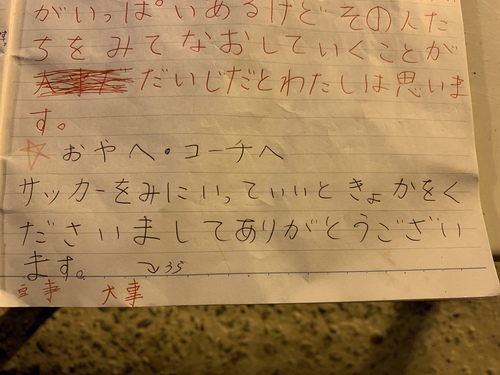 がいっぱいあるけどその人た
ちをみてなおしていくことが
だいじだとわたしは思いま
す。
☆おやへ・コーチへ
サッカーをみにいっていいときょかをく
ださいましてありがとうござい
ます。 →35
事 大事